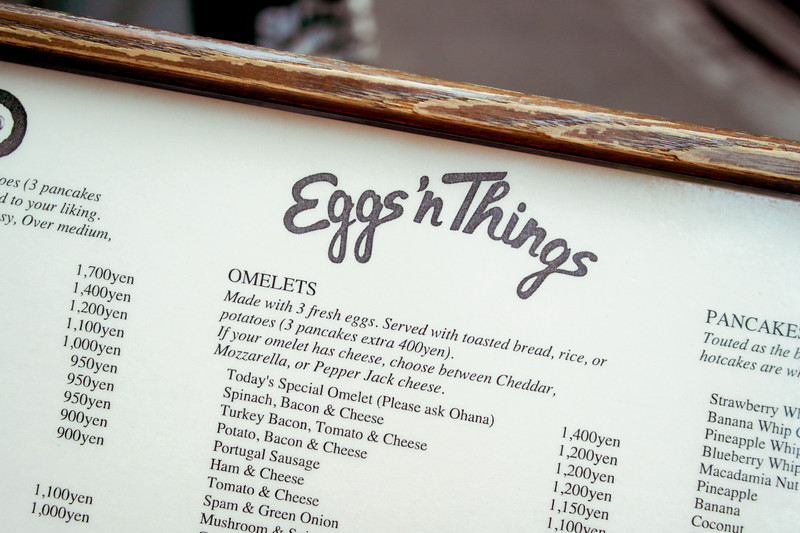 oes (3 pancakes
d to your liking.
sy, Over medium,
1,700yen
1,400yen
1,200yen
1,100yen
1,000yen
950yen
950yen
950yen
900yen
900yen
1,100yen
1,000yen
Eggs 'n Things
OMELETS
Made with 3 fresh eggs. Served with toasted bread, rice, or
potatoes (3 pancakes extra 400yen).
If your omelet has cheese, choose between Cheddar,
Mozzarella, or Pepper Jack cheese.
Today's Special Omelet (Please ask Ohana)
Spinach, Bacon & Cheese
Turkey Bacon, Tomato & Cheese
Potato, Bacon & Cheese
Portugal Sausage
Ham & Cheese
Tomato & Cheese
Spam & Green Onion
Mushroom &
1,400yen
1,200yen
1,200yen
1,200yen
1,150yen
1,100yen
PANCAKES
Touted as the b
hotcakes are wh
Strawberry Wh
Banana Whip C
Pineapple Whip
Blueberry Whip
Macadamia Nut
Pineapple
Banana
Coconut